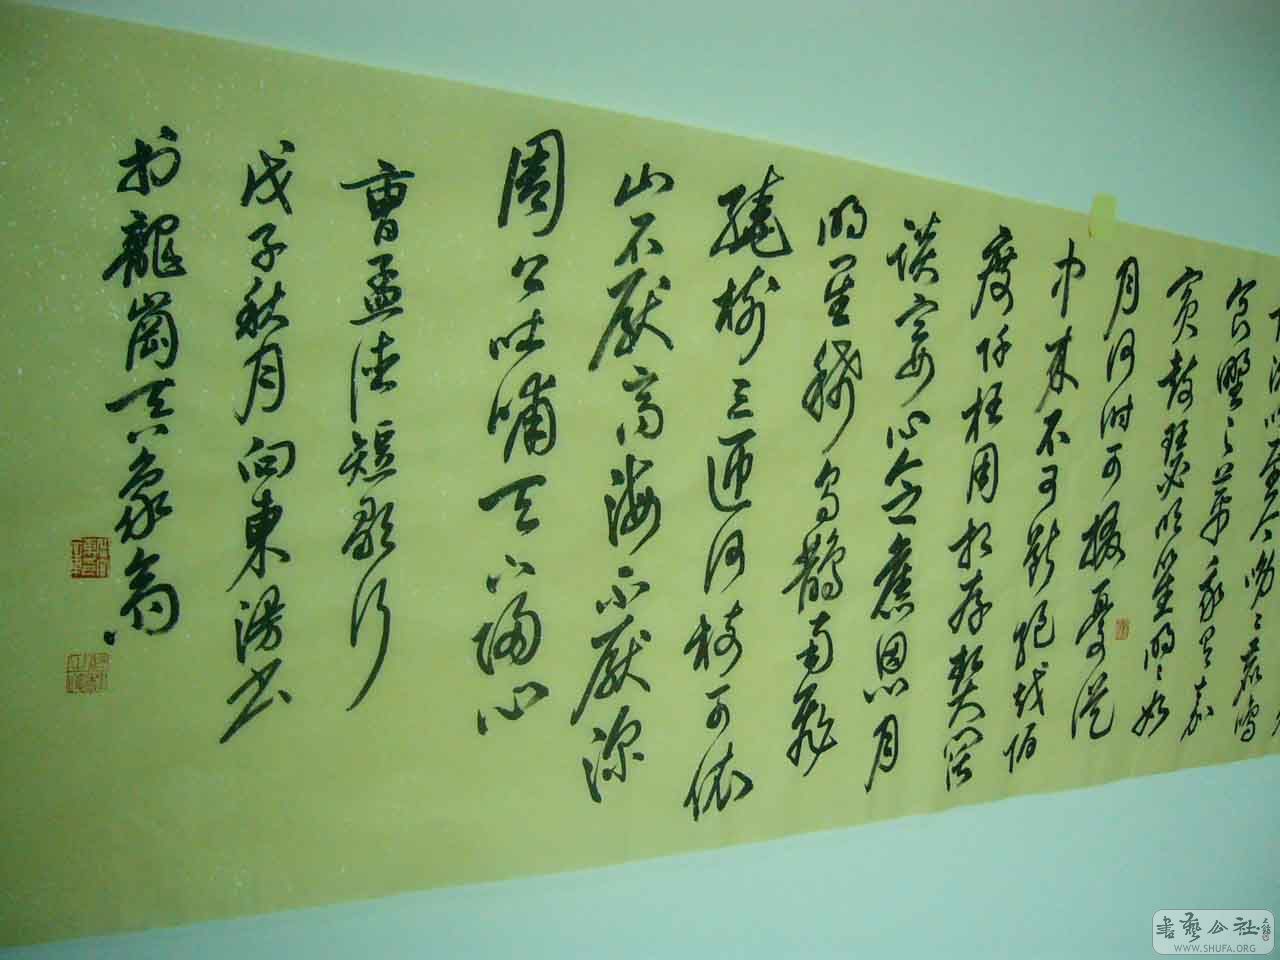 沉吟至今呦々鹿鸣
食野之苹我有嘉
宾鼓瑟吹笙明明如
月何时可掇忧从
中来不可断绝越陌
度阡枉用相存契阔
谈宴心念旧恩月
明星稀乌鹊南飞
绕树三匝何枝可依
山不厌高海不厌深
周公吐哺天下归心
曹孟德短歌行
戊子秋月向东汤书
于龙岗天象斋
書藝公社
WWW.SHUFA.ORG